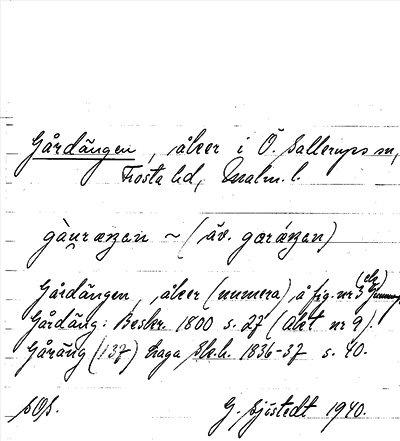 Gårdängen, åker i Ö. Sallerups sn,
Frosta hd, Malm. l.
gàu̯ræŋən ~ (äv. gəráŋən)
Gårdängen, åker (numera) å fig. nr 3
Gårdäng: Beskr. 1800 s. 27 (Akt nr 9).
Gåräng (137) haga Sk.h. 1836-37 s. 40.
SOS. G. Sjöstedt 1940.